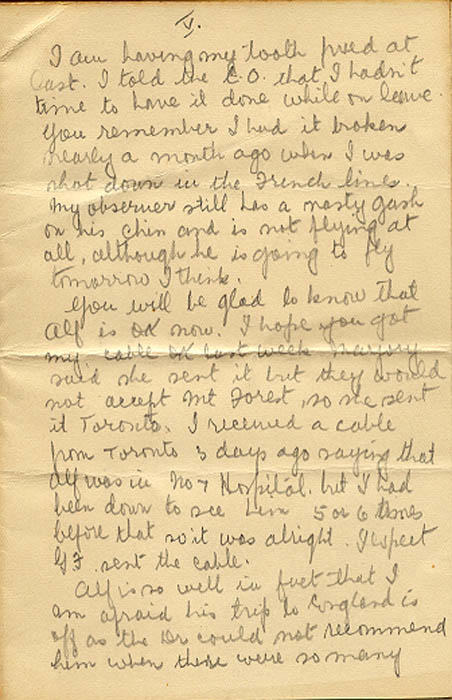 V.
I am having my tooth fixed at
last. I told the C.O. that I hadn't
time to have it done while on leave.
You remember I had it broken
nearly a month ago when I was
shot down in the French lines.
My observer still has a nasty gash
on his chin and is not flying at
all, although he is going to fly
tomorrow I think.
You will be glad to know that
Alf is OK now. I hope you got
my cable OK last week Marjory
said she sent it but they would
not accept Mt Forest, so she sent
it Toronto. I received a cable
from Toronto 3 days ago saying that
Alf was in No 7 Hospital. but I had
been down to see him 5 or 6 times
before that so it was alright. I expect
G.F. sent the cable.
Alf is so well in fact that I
am afraid his trip to England is
off as the Dr could not recommend
him when there were so many